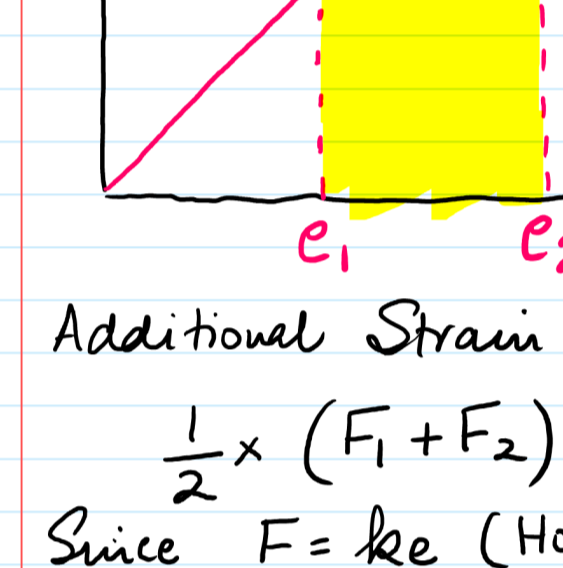 e₁ e
Additional Strain
1/2 × (F₁ + F₂)
Since F = ke (Ho